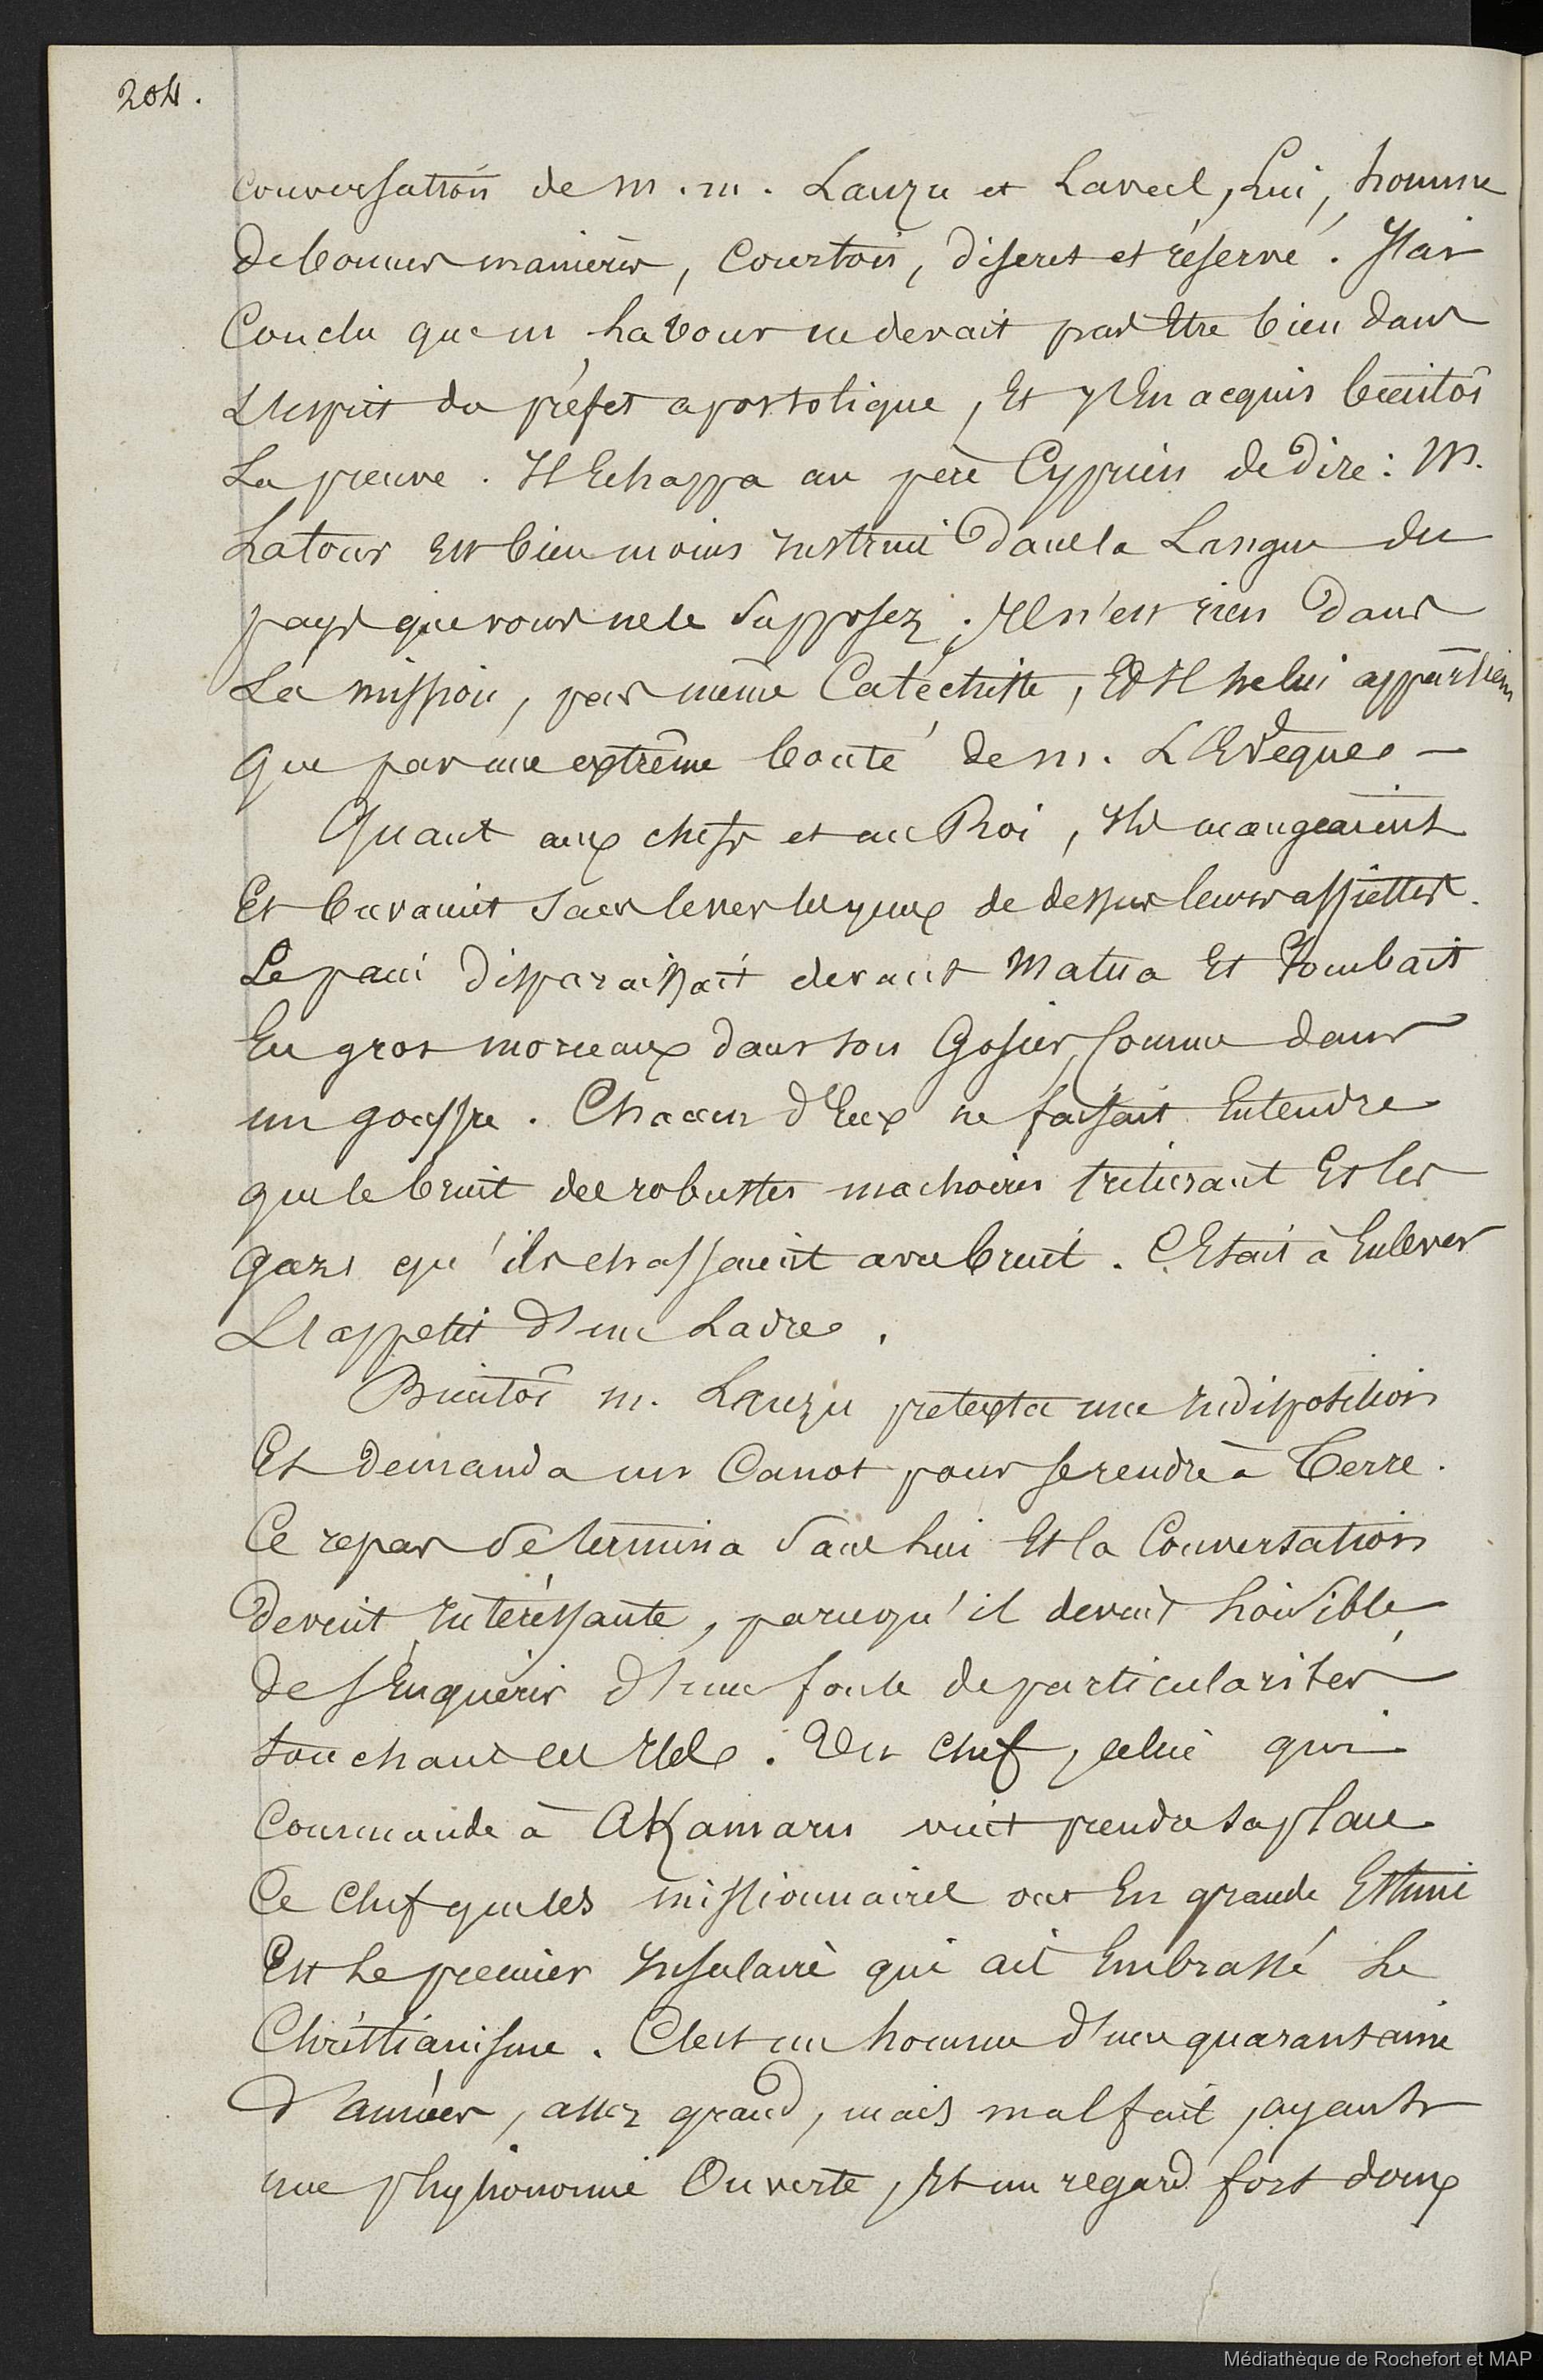 204.
conversation de m. m. Lauzu et Laval, Lui, homme
de bonnes manières, Courtois, discret et réservé. J'ai
Conclu que m Latour ne devait pas Etre bien dans
L'esprit du préfet apostolique, Et J'En acquis bientôt
La preuve. Il Echappa au père Cyprien de Dire : M.
Latour est bien moins Instruit Dans la Langue du
pays que vous ne le Supposez ; Il n'est rien Dans
La mission, pas même Catéchiste, Et Il ne lui appartient
Que par une extrême bonté de m. L'Evêque —
Quant aux chefs et au Roi, Ils mangeaient
Et buvaient sans lever les yeux de dessus leurs assiettes.
Le pain Disparaissait devant Matua Et Tombait
En gros morceaux dans son Gosier, Comme dans
un gouffre. Chacun d'Eux ne faisait Entendre
que le bruit des robustes machoires triturant Et les
Gazs qu'ils chassaient avec bruit. C'Etait à Enlever
L'appetit D'un Ladre.
Bientôt m. Lauzu pretexta une Indisposition
Et Demanda un Canot pour se rendre à Terre.
Ce repas Se termina Sans Lui Et la Conversation
Devint Intéressante, parcequ'il devint Loisible
de s'Enquérir D'une foule de particularités
touchant ces Iles. Un Chef, celui qui
Commande à AKamaru vint prendre sa place
Ce Chef que les missionnaires ont En grande Estime
Est Le premier Insulaire qui ait Embrassé Le
Christianisme. C'est un homme d'une quarantaine
D'années, assez grand, mais mal fait, ayant
une physionomie Ouverte, Et un regard fort doux
Médiathèque de Rochefort et MAP